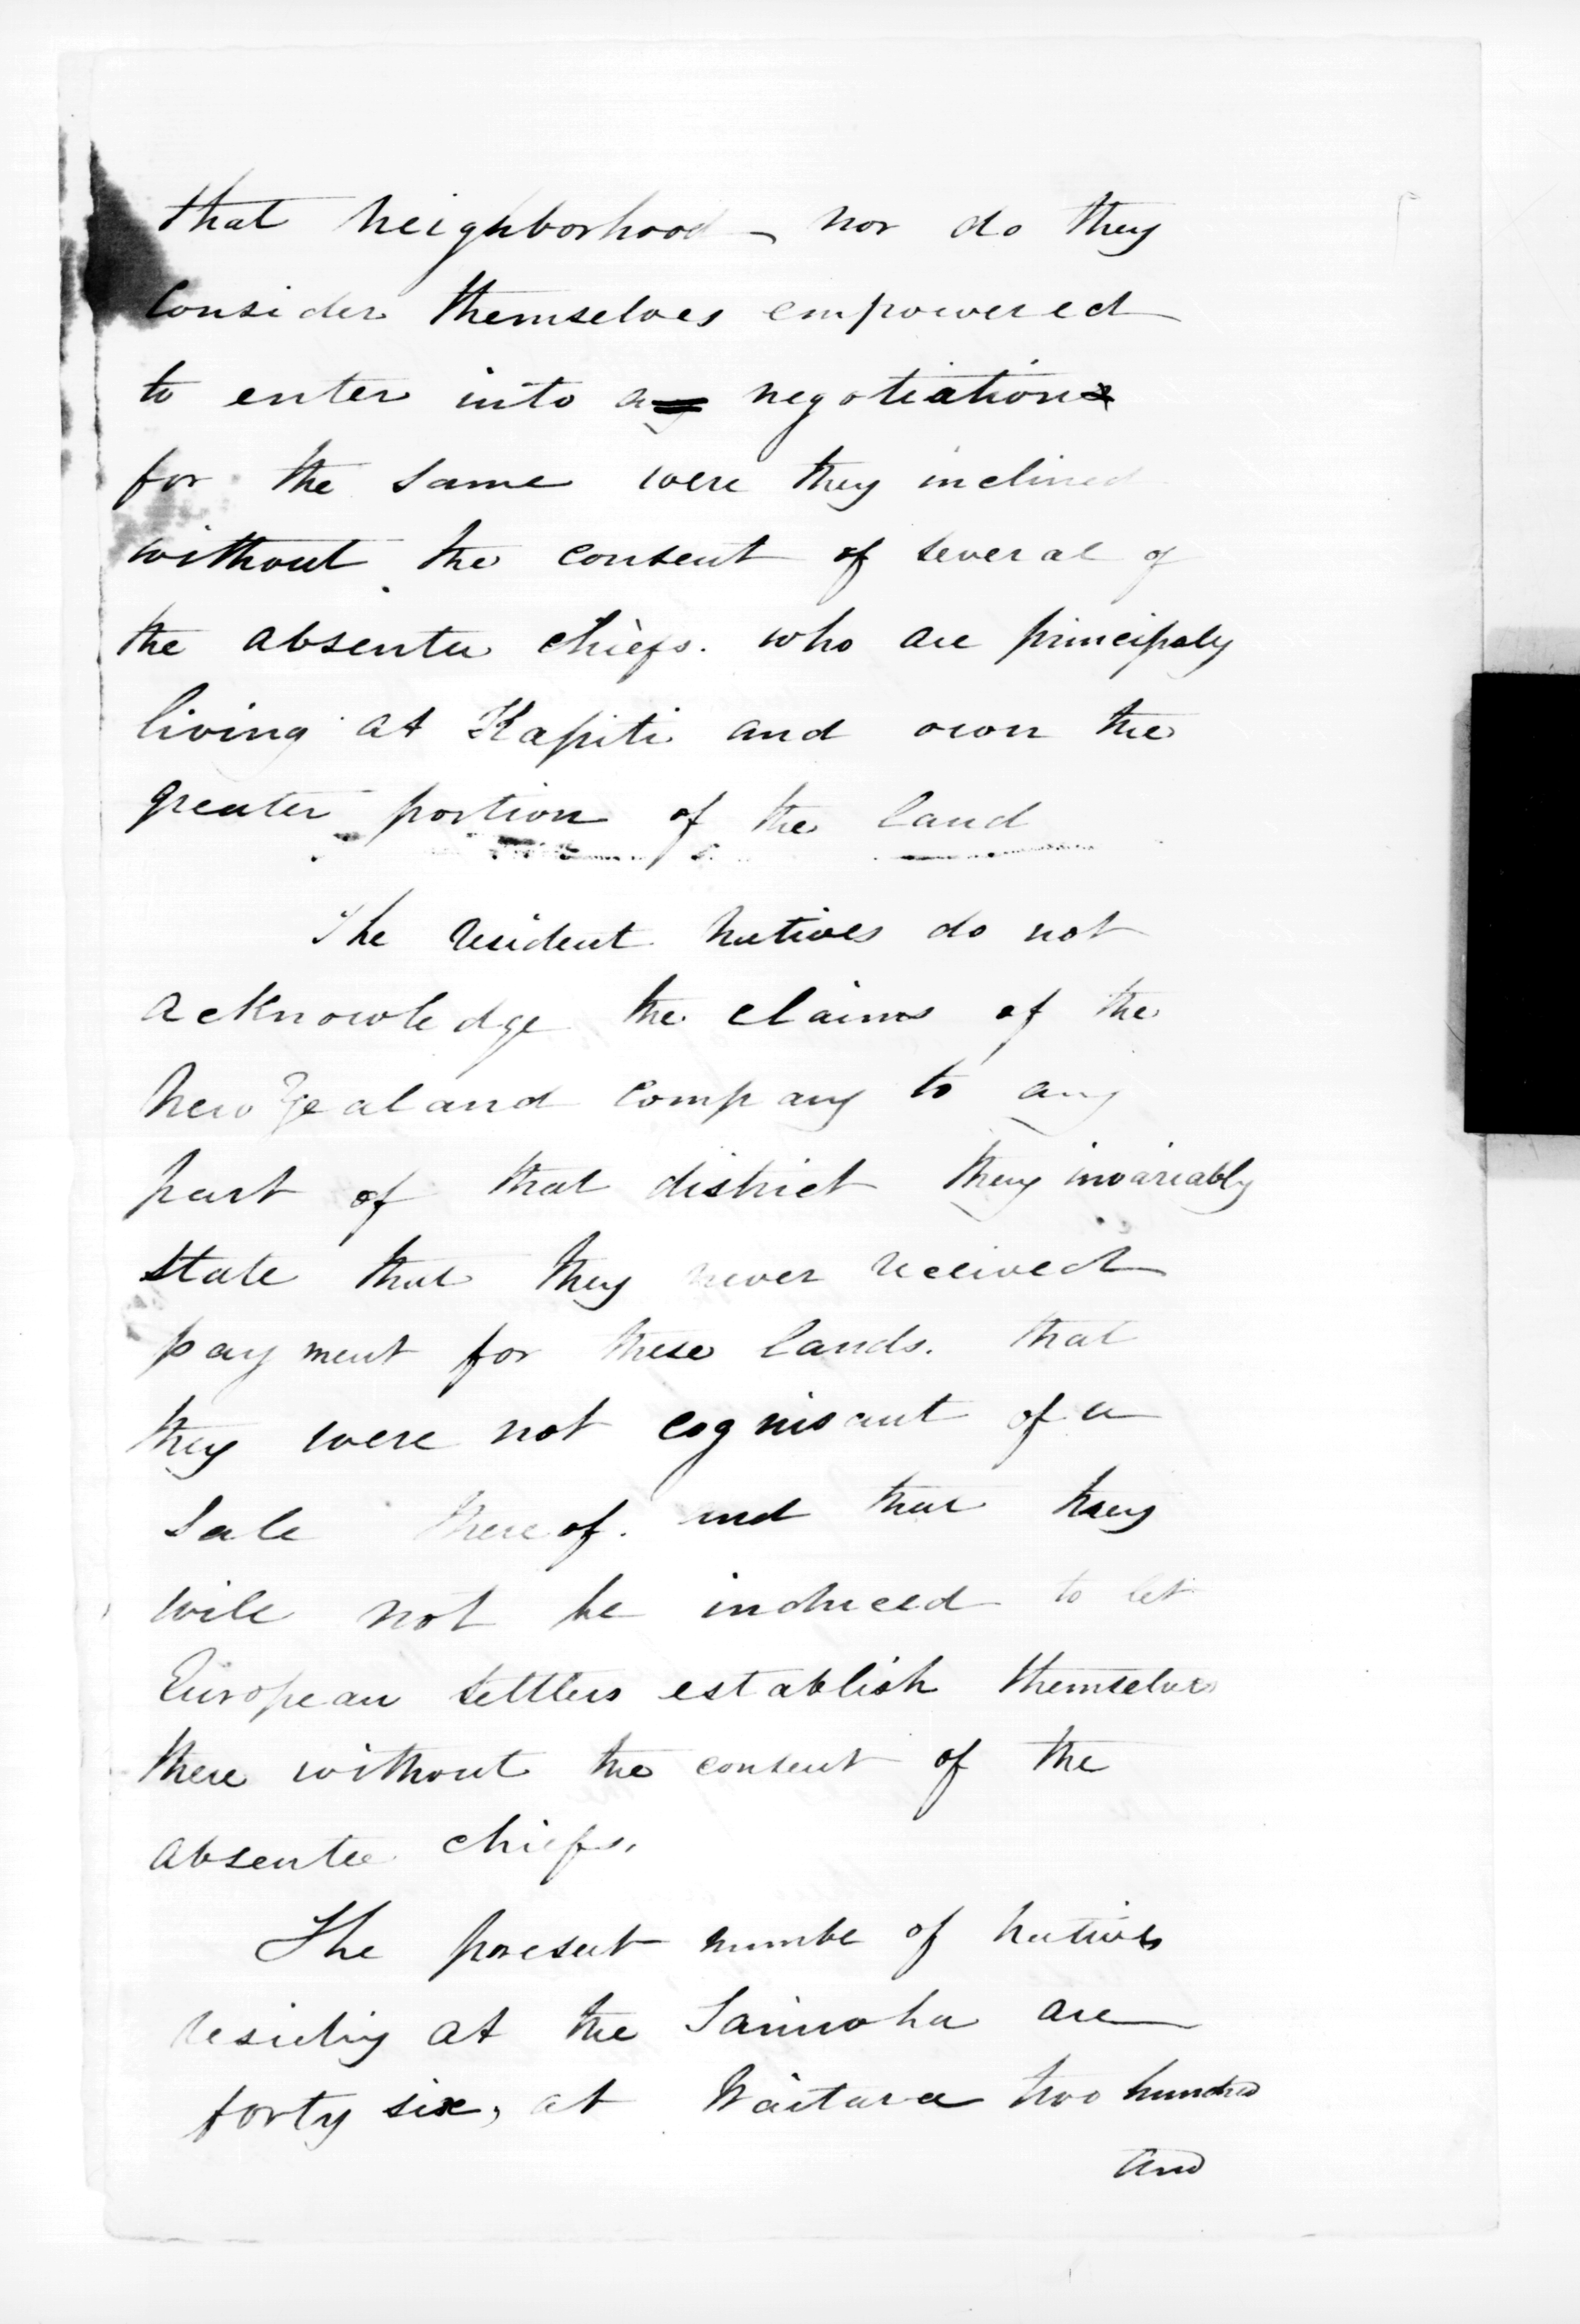 that neighborhood - nor do they
consider themselves empowered
to enter into a negotiation
for the same were they inclined
without the consent of several of
the absentee chiefs. who are principaly
living at Kapiti and own the
greater portion of the land
The resident natives do not
acknowledge the claims of the
New Zealand Company to any
part of that district they invariably
state that they never received
payment for these lands. that
they were not cognisant of a
sale thereof. and that they
will not be induced to let
European settlers establish themselves
there without the consent of the
absentee chiefs.
The present numbe of natives
residing at the are
forty six, at Waitara two hundred
and